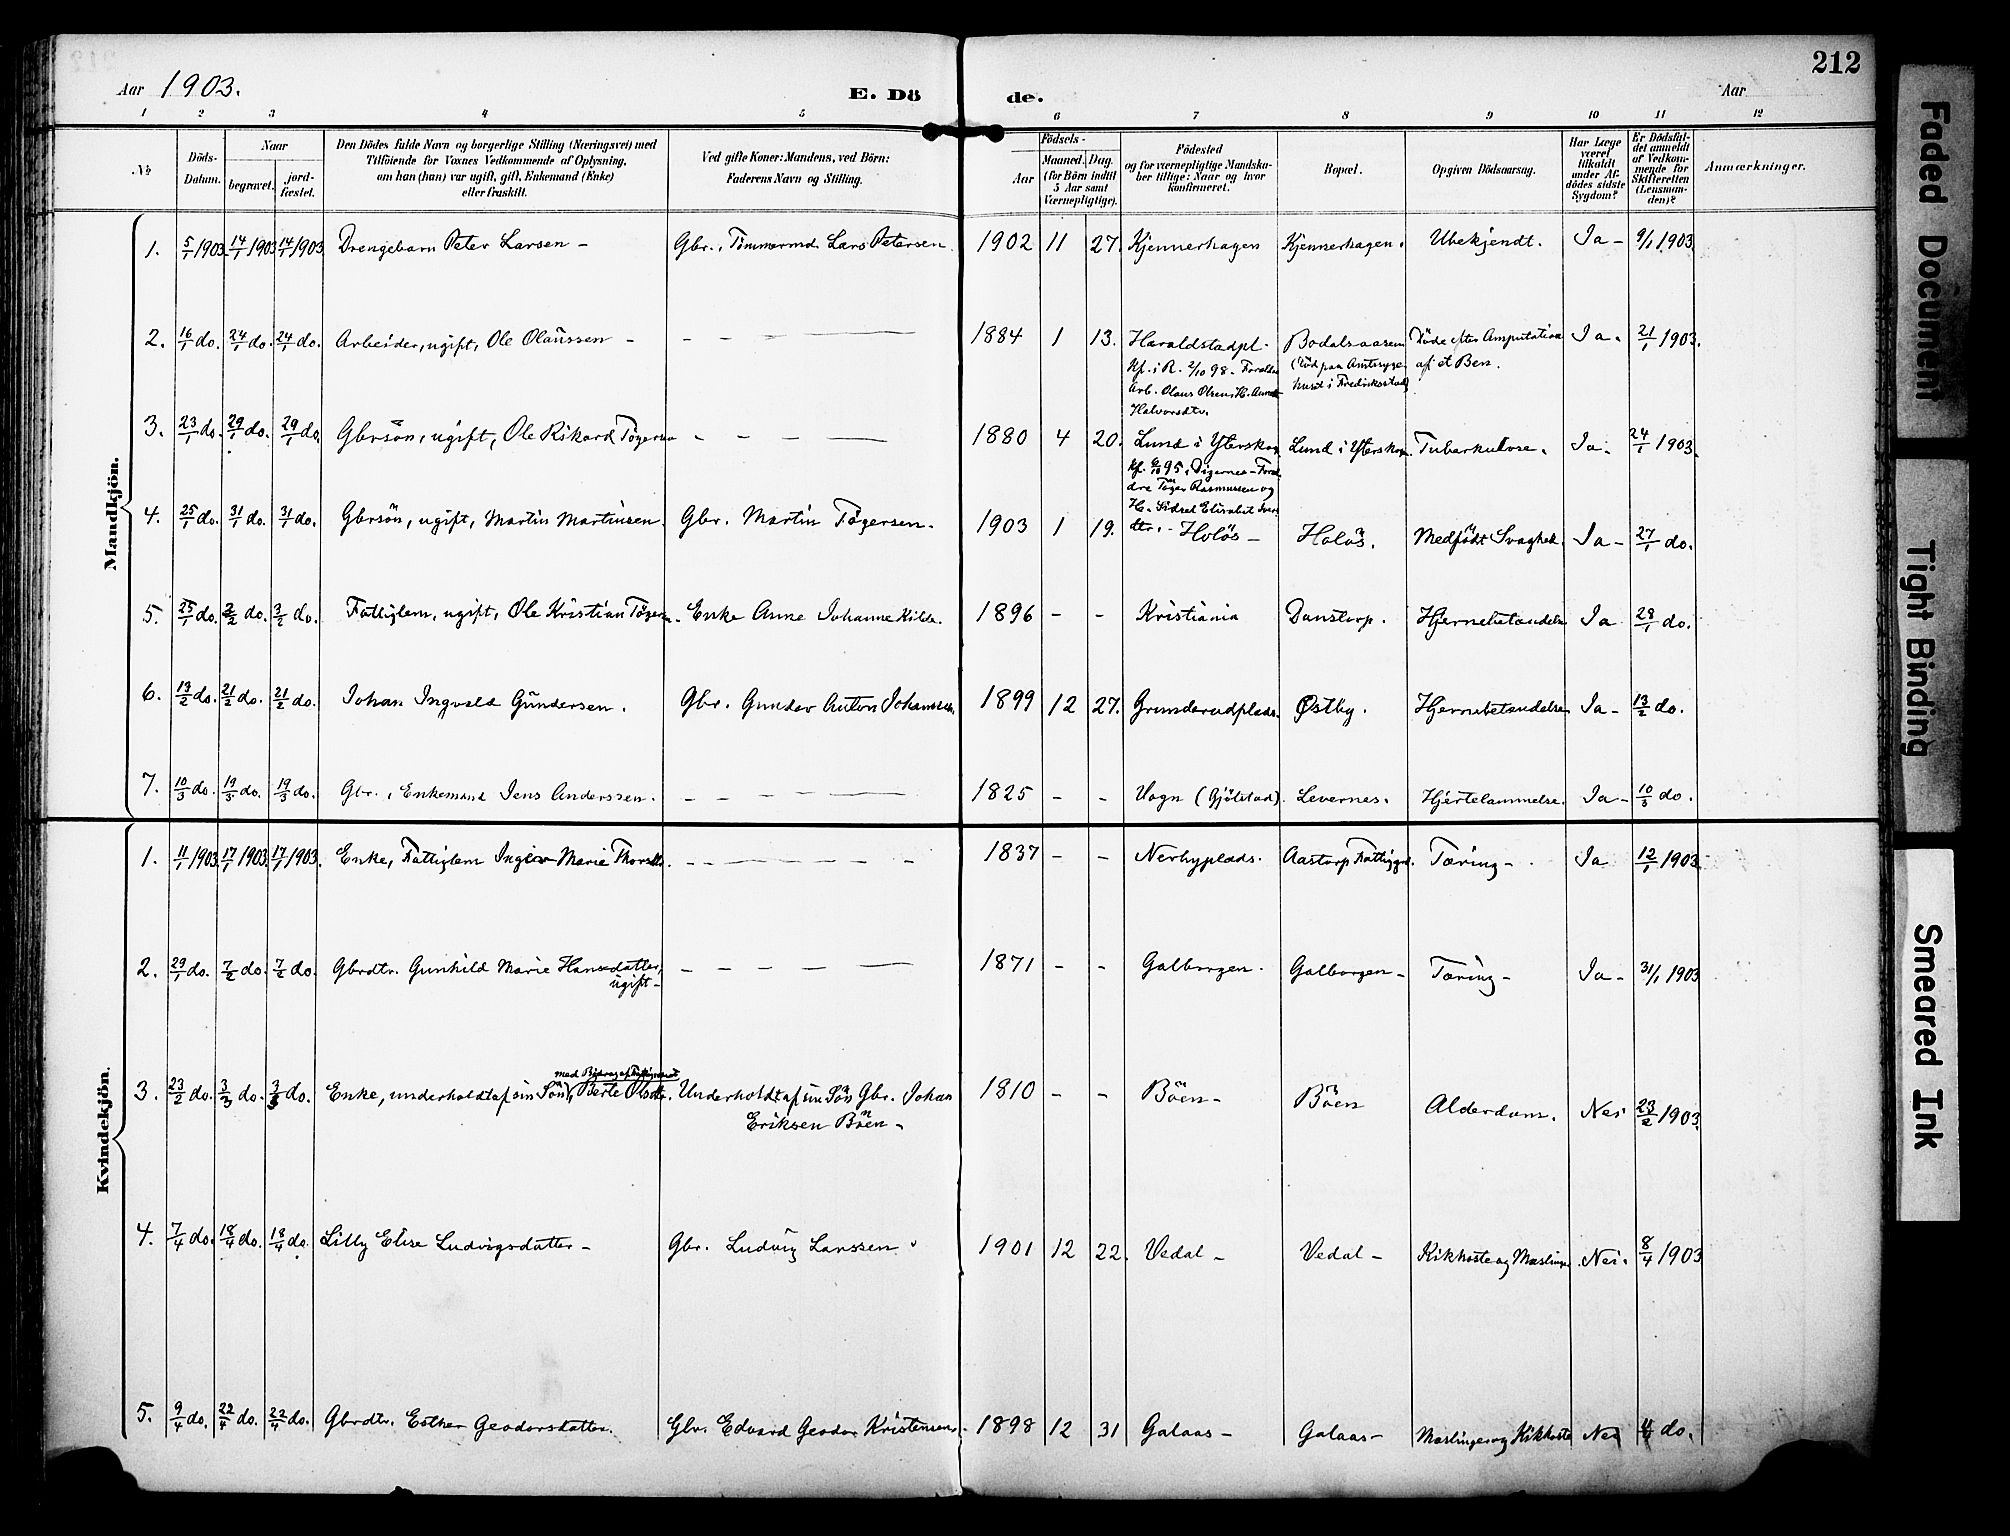 212
Aar 1903.
E. Döde.
Aar
1 2 3 4 5 6 7 8 9 10 11 12
No
Döds-Datum.
Naar
begravet.
jord-fæstet.
Den Dödes fulde Navn og borgerlige Stilling (Næringsvei) med
Tilföiende for Voxnes Vedkommende af Oplysning,
om han (hun) var ugift, gift, Enkemand (Enke)
eller fraskilt.
Ved gifte Koner: Mandens, ved Börn:
Faderens Navn og Stilling.
Födsels-
Aar
Maaned. Dag.
(for Börn indtil
5 Aar samt
Værnepligtige).
Födested
og for værnepligtige Mandska-
ber tillige: Naar og hvor
konfirmeret.
Bopæl.
Opgiven Dödsaarsag.
Har Læge
været
tilkaldt
under Af-
dödes sidste
Sygdom?
Er Dödsfal-
det anmeldt
af Vedkom-
mende for
Skifteretten
(Lensman-
den)?
Anmærkninger.
Mandkjön.
1. 5/1 1903 14/1 1903 14/1 1903 Drengebarn Peter Larsen – Gbr., Tömmermd. Lars Petersen. 1902 11 27. Kjennerhagen Kjennerhagen. Ubekjendt. Ja – 9/1 1903.
2. 16/1 do. 24/1 do. 24/1 do. Arbeider, ugift, Ole Olaussen – – – – – 1884 1 13. Haraldstadpl. Bodalsaasen Döde efter Amputation Ja. 21/1 1903.
Kf. i R. 2/10 98. Forældre (Död paa Amtssyge- af et Ben.
Arb. Olaus Olsen, H. huset i Fredrikstad)
Halvorsdtr.
3. 23/1 do. 29/1 do. 29/1 do. Gbrsön, ugift, Ole Rikard Tögersen – – – – 1880 4 20. Lund i Yterskog Lund i Yterskog. Tuberkulose. Ja. 24/1 1903.
95, Digernes – Foræl-
dre Töger Rasmussen og
H. Sidsel Elisabet
dtr. –
4. 25/1 do. 31/1 do. 31/1 do. Gbrsön, ugift, Martin Martinsen. Gbr. Martin Tögersen. 1903 1 19. Holös – Holös. Medfödt Svaghed. Ja – 27/1 do.
5. 25/1 do. 3/2 do. 3/2 do. Fattiglem, ugift, Ole Kristian Tögersen. Enke Anne Johanne Kilds. 1896 – – Kristiania Danstorp. Hjernebetændelse Ja 28/1 do.
6. 13/2 do. 21/2 do. 21/2 do. Johan Ingvald Gundersen. Gbr. Gunder Anton Johannsen. 1899 12 27. Grunderudplads. Østby. Hjernebetændelse Ja – 13/2 do.
7. 10/3 do. 19/3 do. 19/3 do. Gbr., Enkemand Jens Anderssen. – – – – 1825 – – Vogn (Gjölstad). Levernes. Hjertelammelse. Ja – 10/3 do.
Kvindekjön.
1. 11/1 1903 17/1 1903 17/1 1903. Enke, Fattiglem Marie – – – – 1837 – – Nerbyplads. Aastorp Fattiggrd. Tæring – Ja 12/1 1903.
2. 29/1 do. 7/2 do. 7/2 do. Gbrdtr. Gunhild Marie Hansdatter, – – – – 1871 – – Galborgen. Galborgen – Tæring – Ja – 31/1 1903
ugift –
med Bidrag af
3. 23/2 do. 3/3 do. 3/3 do. Enke, underholdt af sin Sön, Berte Olsdtr. Underholdt af sin Sön Gbr. Johan 1810 – – Böen – Böen Alderdom. Nei 23/2 1903.
Eriksen Böen –
4. 7/4 do. 18/4 do. 18/4 do. Lilly Elise Ludvigsdatter – Gbr. Ludvig Larssen 1901 12 22. Vedal – Vedal – Kikhoste og Mæslinger Nei. 8/4 1903
5. 9/4 do. 22/4 do. 22/4 do. Gbrdtr. Esther Geodorsdatter. Gbr. Edvard Geodor Kristensen. 1898 12 31 Galaas – Galaas – Mæslinger og Kikhoste Nei do.
Faded Document
Tight Binding
Smeared Ink